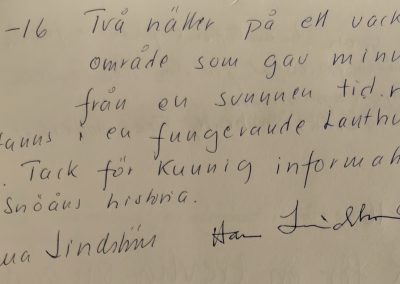 -16 Två nätter på ett vack
område som gav minn
från en svunnen tid.
fanns i en fungerande Lanthu
. Tack för kunnig informat
Snöåns historia.
Lindströms Han Lindst